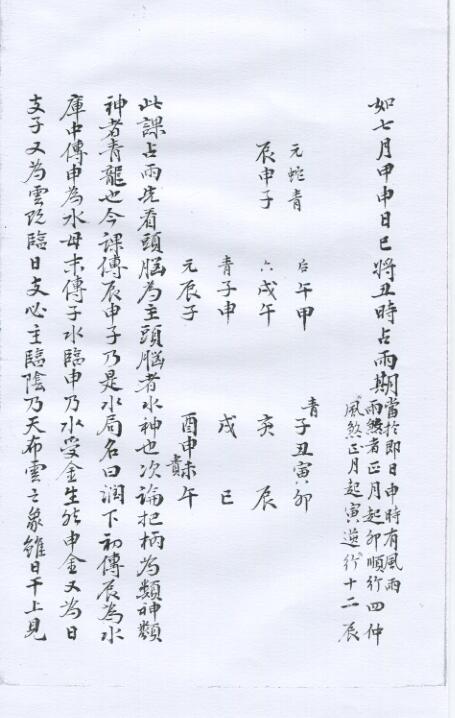 如七月甲申日巳將丑時占雨期
當於即日申時有風雨
雨煞者正月起卯順行四仲
風煞正月起寅逆行十二辰
元蛇青
辰申子
后午甲
六戌午
青子申
元辰子
青子丑寅卯
亥 辰
戌 巳
酉申未午
貴
此課占雨先看頭腦為主頭腦者水神也次論把柄為類神類
神者青龍也今課傳辰申子乃是水局名曰润下初傳辰為水
庫中傳申為水母末傳子水臨申乃水受金生然申金又為日
支子又為雲既臨日支必主臨陰乃天布雲之象雖日干上見